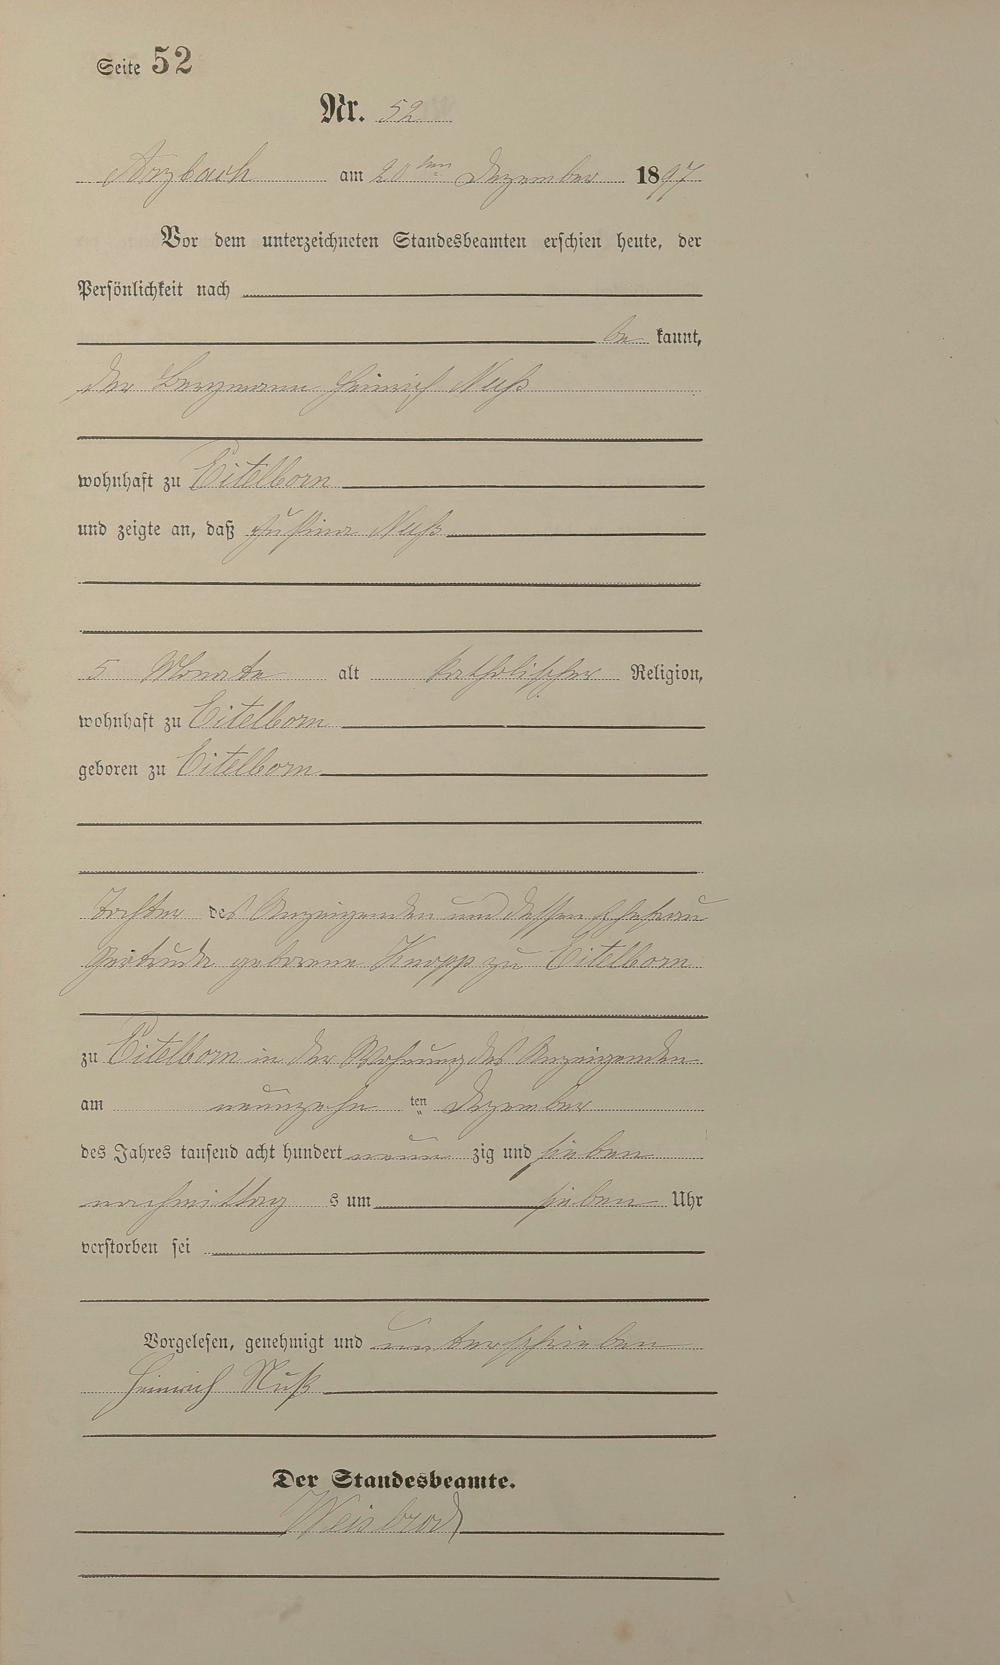 Seite 52
Nr. 52
Arzbach am 20ten Dezember 1897
Vor dem unterzeichneten Standesbeamten erschien heute, der
Persönlichkeit nach
be kannt,
der Bergmann Heinrich Nuß
wohnhaft zu Eitelborn
und zeigte an, daß Justina Nuß
5 Monate alt katholischer Religion,
wohnhaft zu Eitelborn
geboren zu Eitelborn
Tochter des Anzeigenden und dessen Ehefrau
Gertrude geborene Knopp zu Eitelborn
zu Eitelborn in der Wohnung des Anzeigenden
am neunzehn ten Dezember
des Jahres tausend acht hundert neun zig und sieben
nachmittag s um sieben Uhr
verstorben sei
Vorgelesen, genehmigt und unterschrieben
Heinrich Nuß
Der Standesbeamte.
Weisbrod